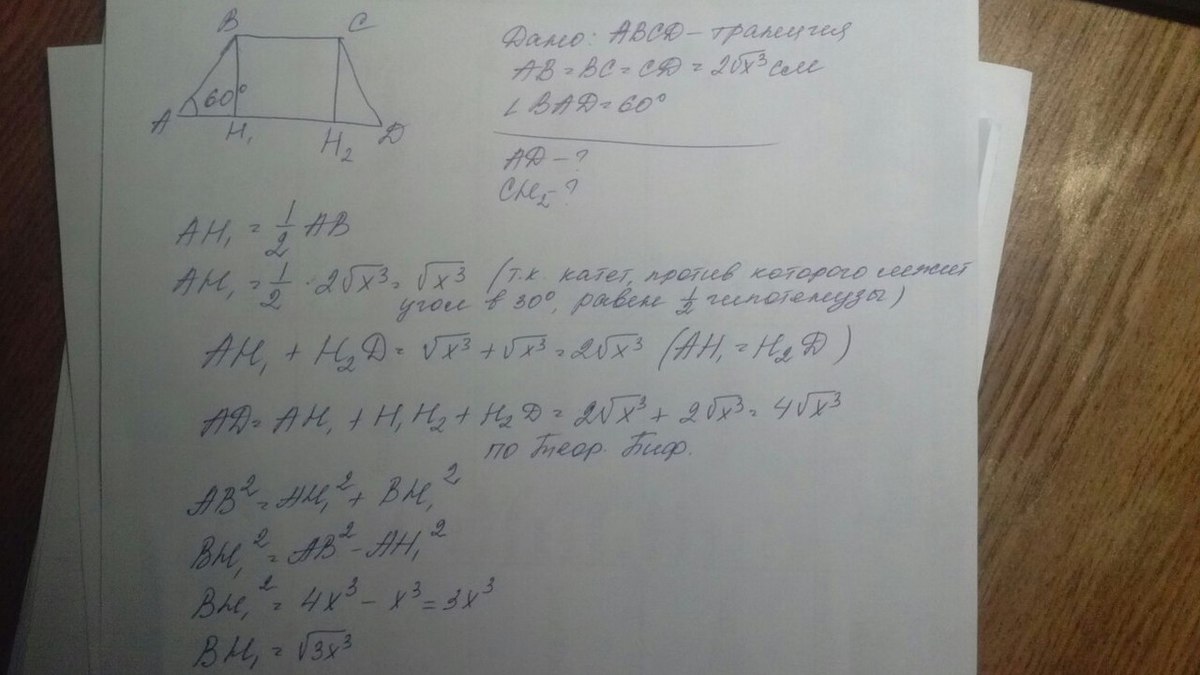 B C
60°
A H₁ H₂ D
Дано: ABCD - трапеция
AB = BC = CD = 2√x³ см
∠BAD = 60°
AD - ?
CH₂ - ?
AH₁ = 1/2 AB
AH₁ = 1/2 · 2√x³ = √x³ (т.к. катет, против которого лежит
угол в 30°, равен 1/2 гипотенузы)
AH₁ + H₂D = √x³ + √x³ = 2√x³ (AH₁ = H₂D)
AD = AH₁ + H₁H₂ + H₂D = 2√x³ + 2√x³ = 4√x³
по теор. Пиф.
AB² = AH₁² + BH₁²
BH₁² = AB² - AH₁²
BH₁² = 4x³ - x³ = 3x³
BH₁ = √3x³